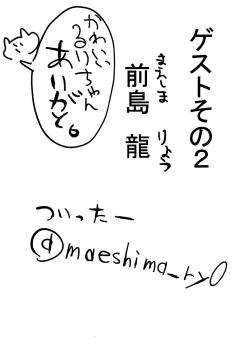 ゲストその2
まえしま りょう
前島 龍
かわいい
るりちゃん
ありがと。
ついったー
@maeshima_ryo